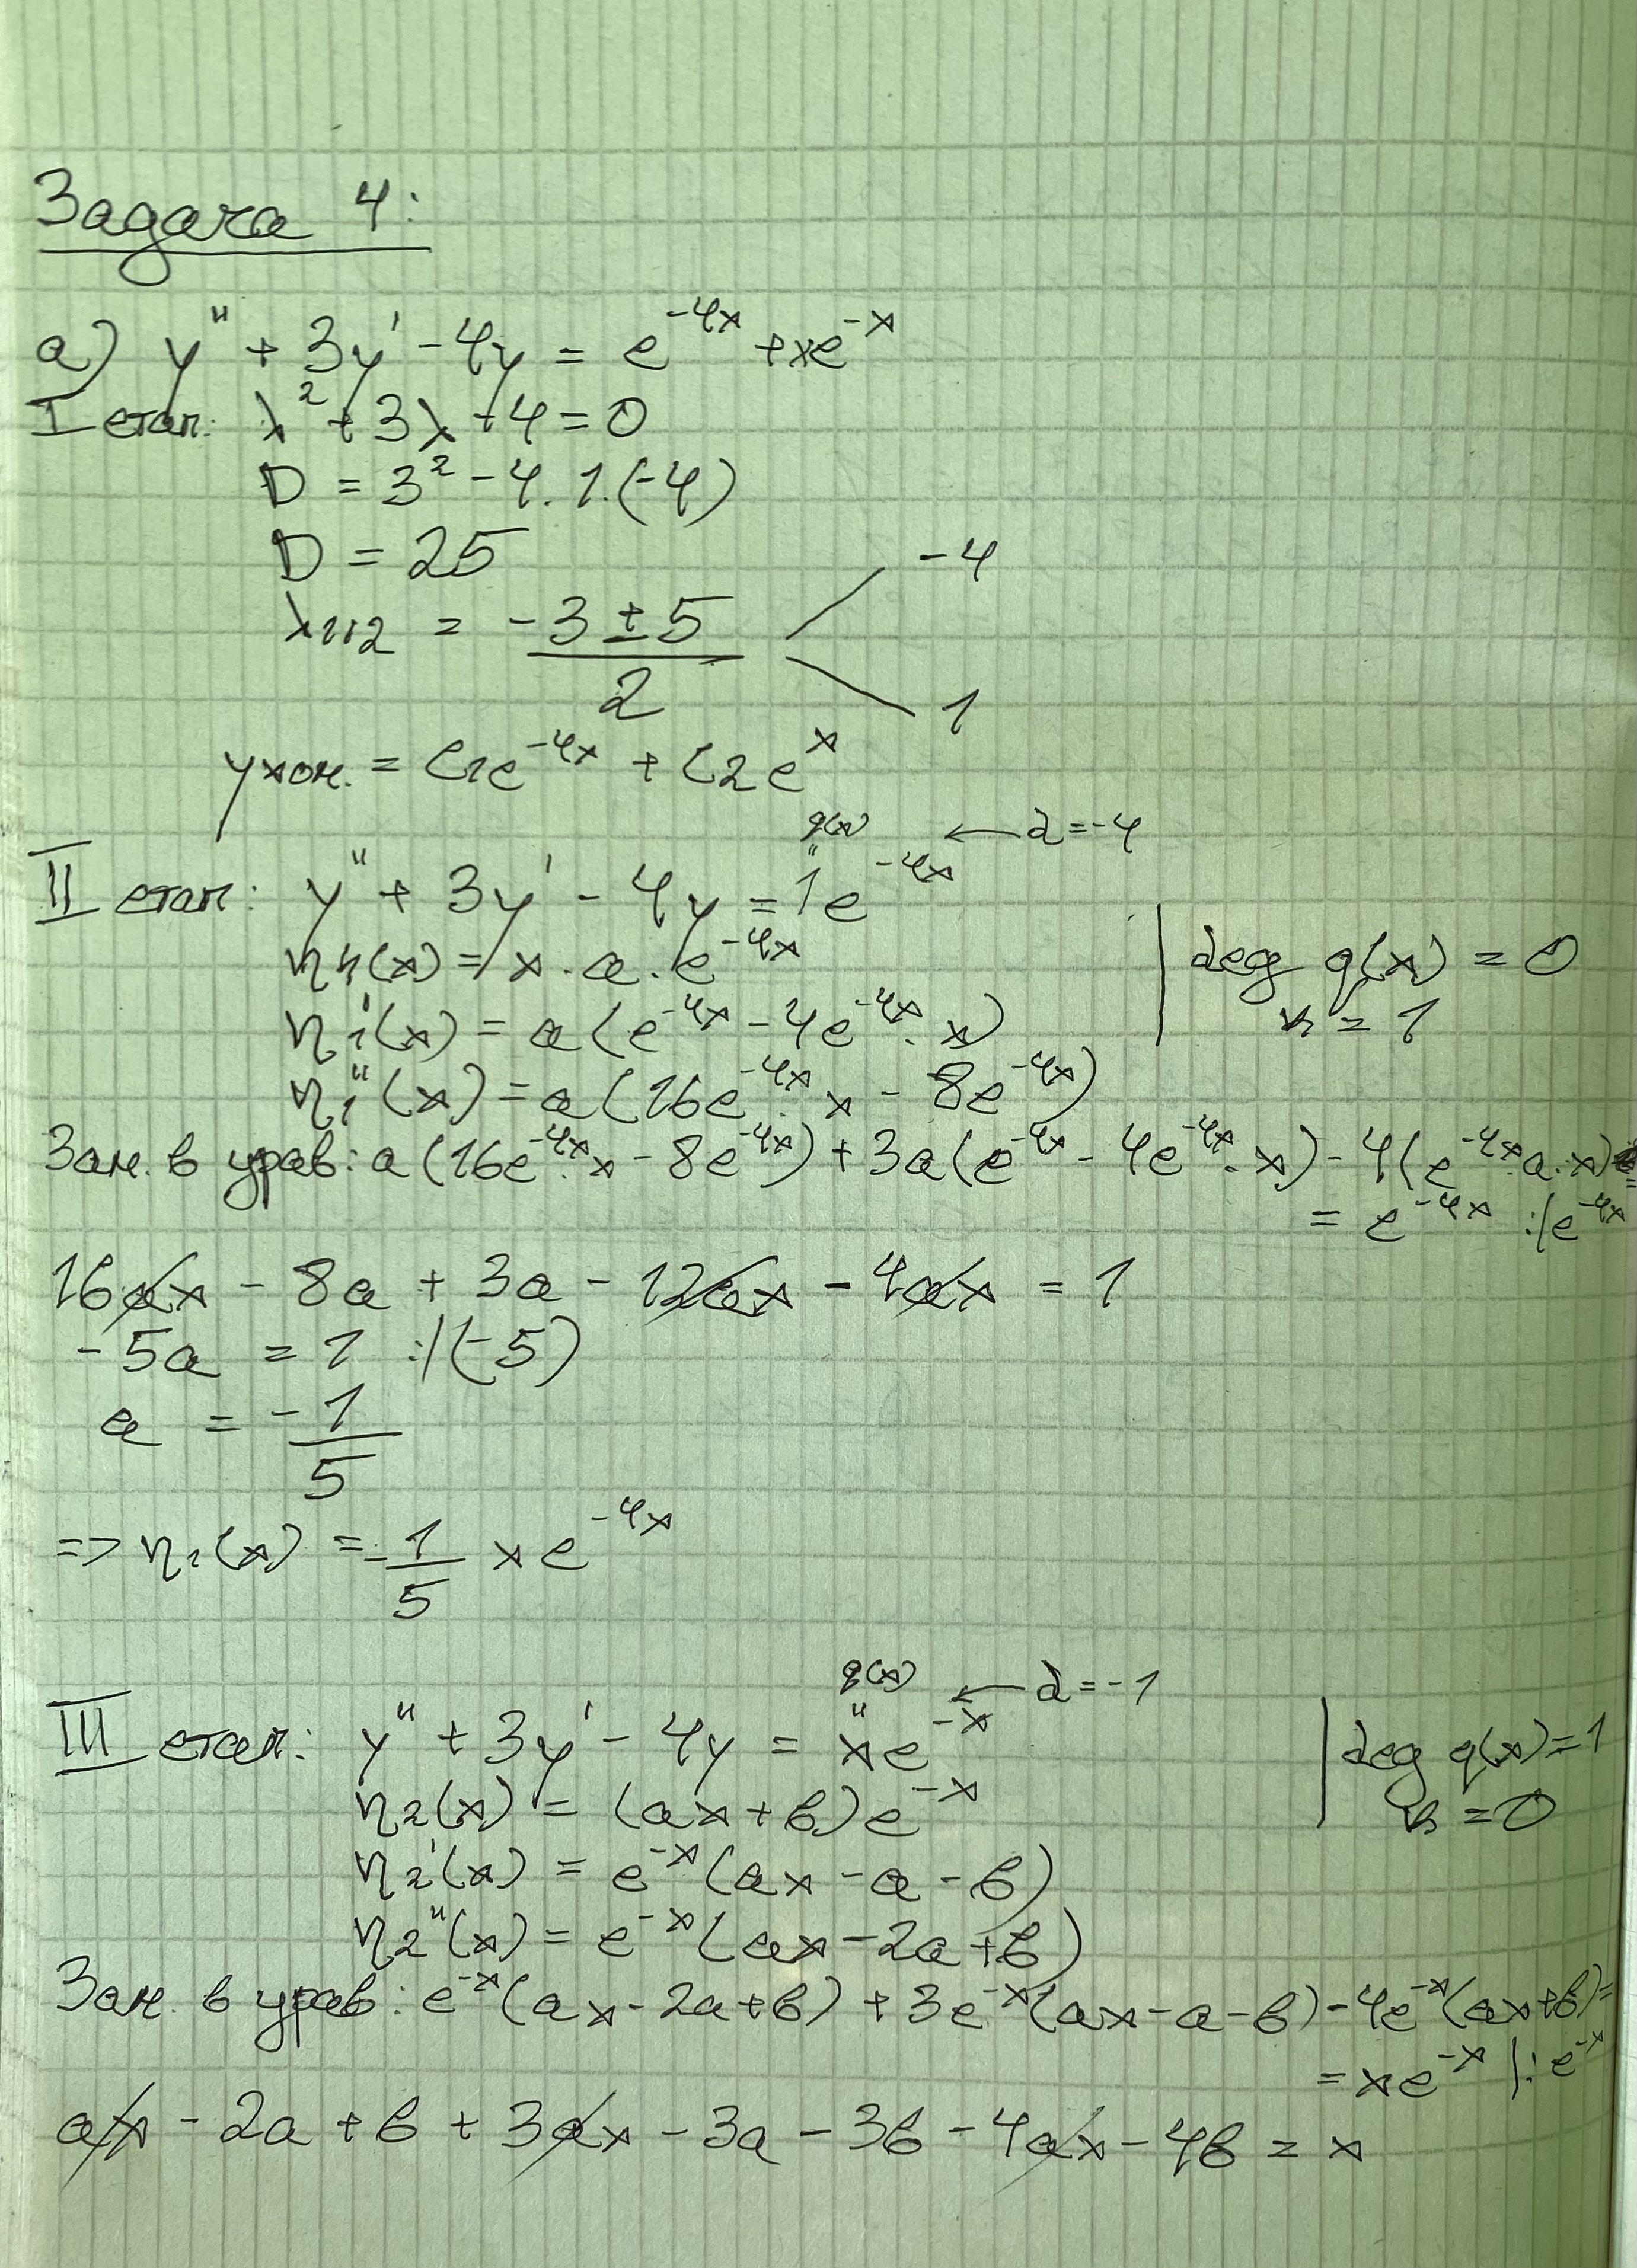 Задача 4:
а) y'' + 3y' - 4y = e^{-4x} + xe^{-x}
I етап: λ² + 3λ + 4 = 0
D = 3² - 4.1.(-4)
D = 25
λ1,2 = (-3 ± 5)/2 -4 1
yхом. = C1e^{-4x} + C2e^{x}
q(x) ← α = -4
II етап: y'' + 3y' - 4y = 1e^{-4x}
η1(x) = x.a.e^{-4x} | deg q(x) = 0
η1'(x) = a(e^{-4x} - 4e^{-4x}.x) k = 1
η1''(x) = a(16e^{-4x}.x - 8e^{-4x})
Зам. в урав: a(16e^{-4x}.x - 8e^{-4x}) + 3a(e^{-4x} - 4e^{-4x}.x) - 4(e^{-4x}.a.x) =
= e^{-4x} :/e^{-4x}
16ax - 8a + 3a - 12ax - 4ax = 1
-5a = 1 :/(-5)
a = -1/5
=> η1(x) = -1/5 xe^{-4x}
q(x) ← α = -1
III етап: y'' + 3y' - 4y = xe^{-x} | deg q(x) = 1
η2(x) = (ax + b)e^{-x} k = 0
η2'(x) = e^{-x}(ax - a - b)
η2''(x) = e^{-x}(ax - 2a + b)
Зам. в урав: e^{-x}(ax - 2a + b) + 3e^{-x}(ax - a - b) - 4e^{-x}(ax + b) =
= xe^{-x} |:e^{-x}
ax - 2a + b + 3ax - 3a - 3b - 4ax - 4b = x